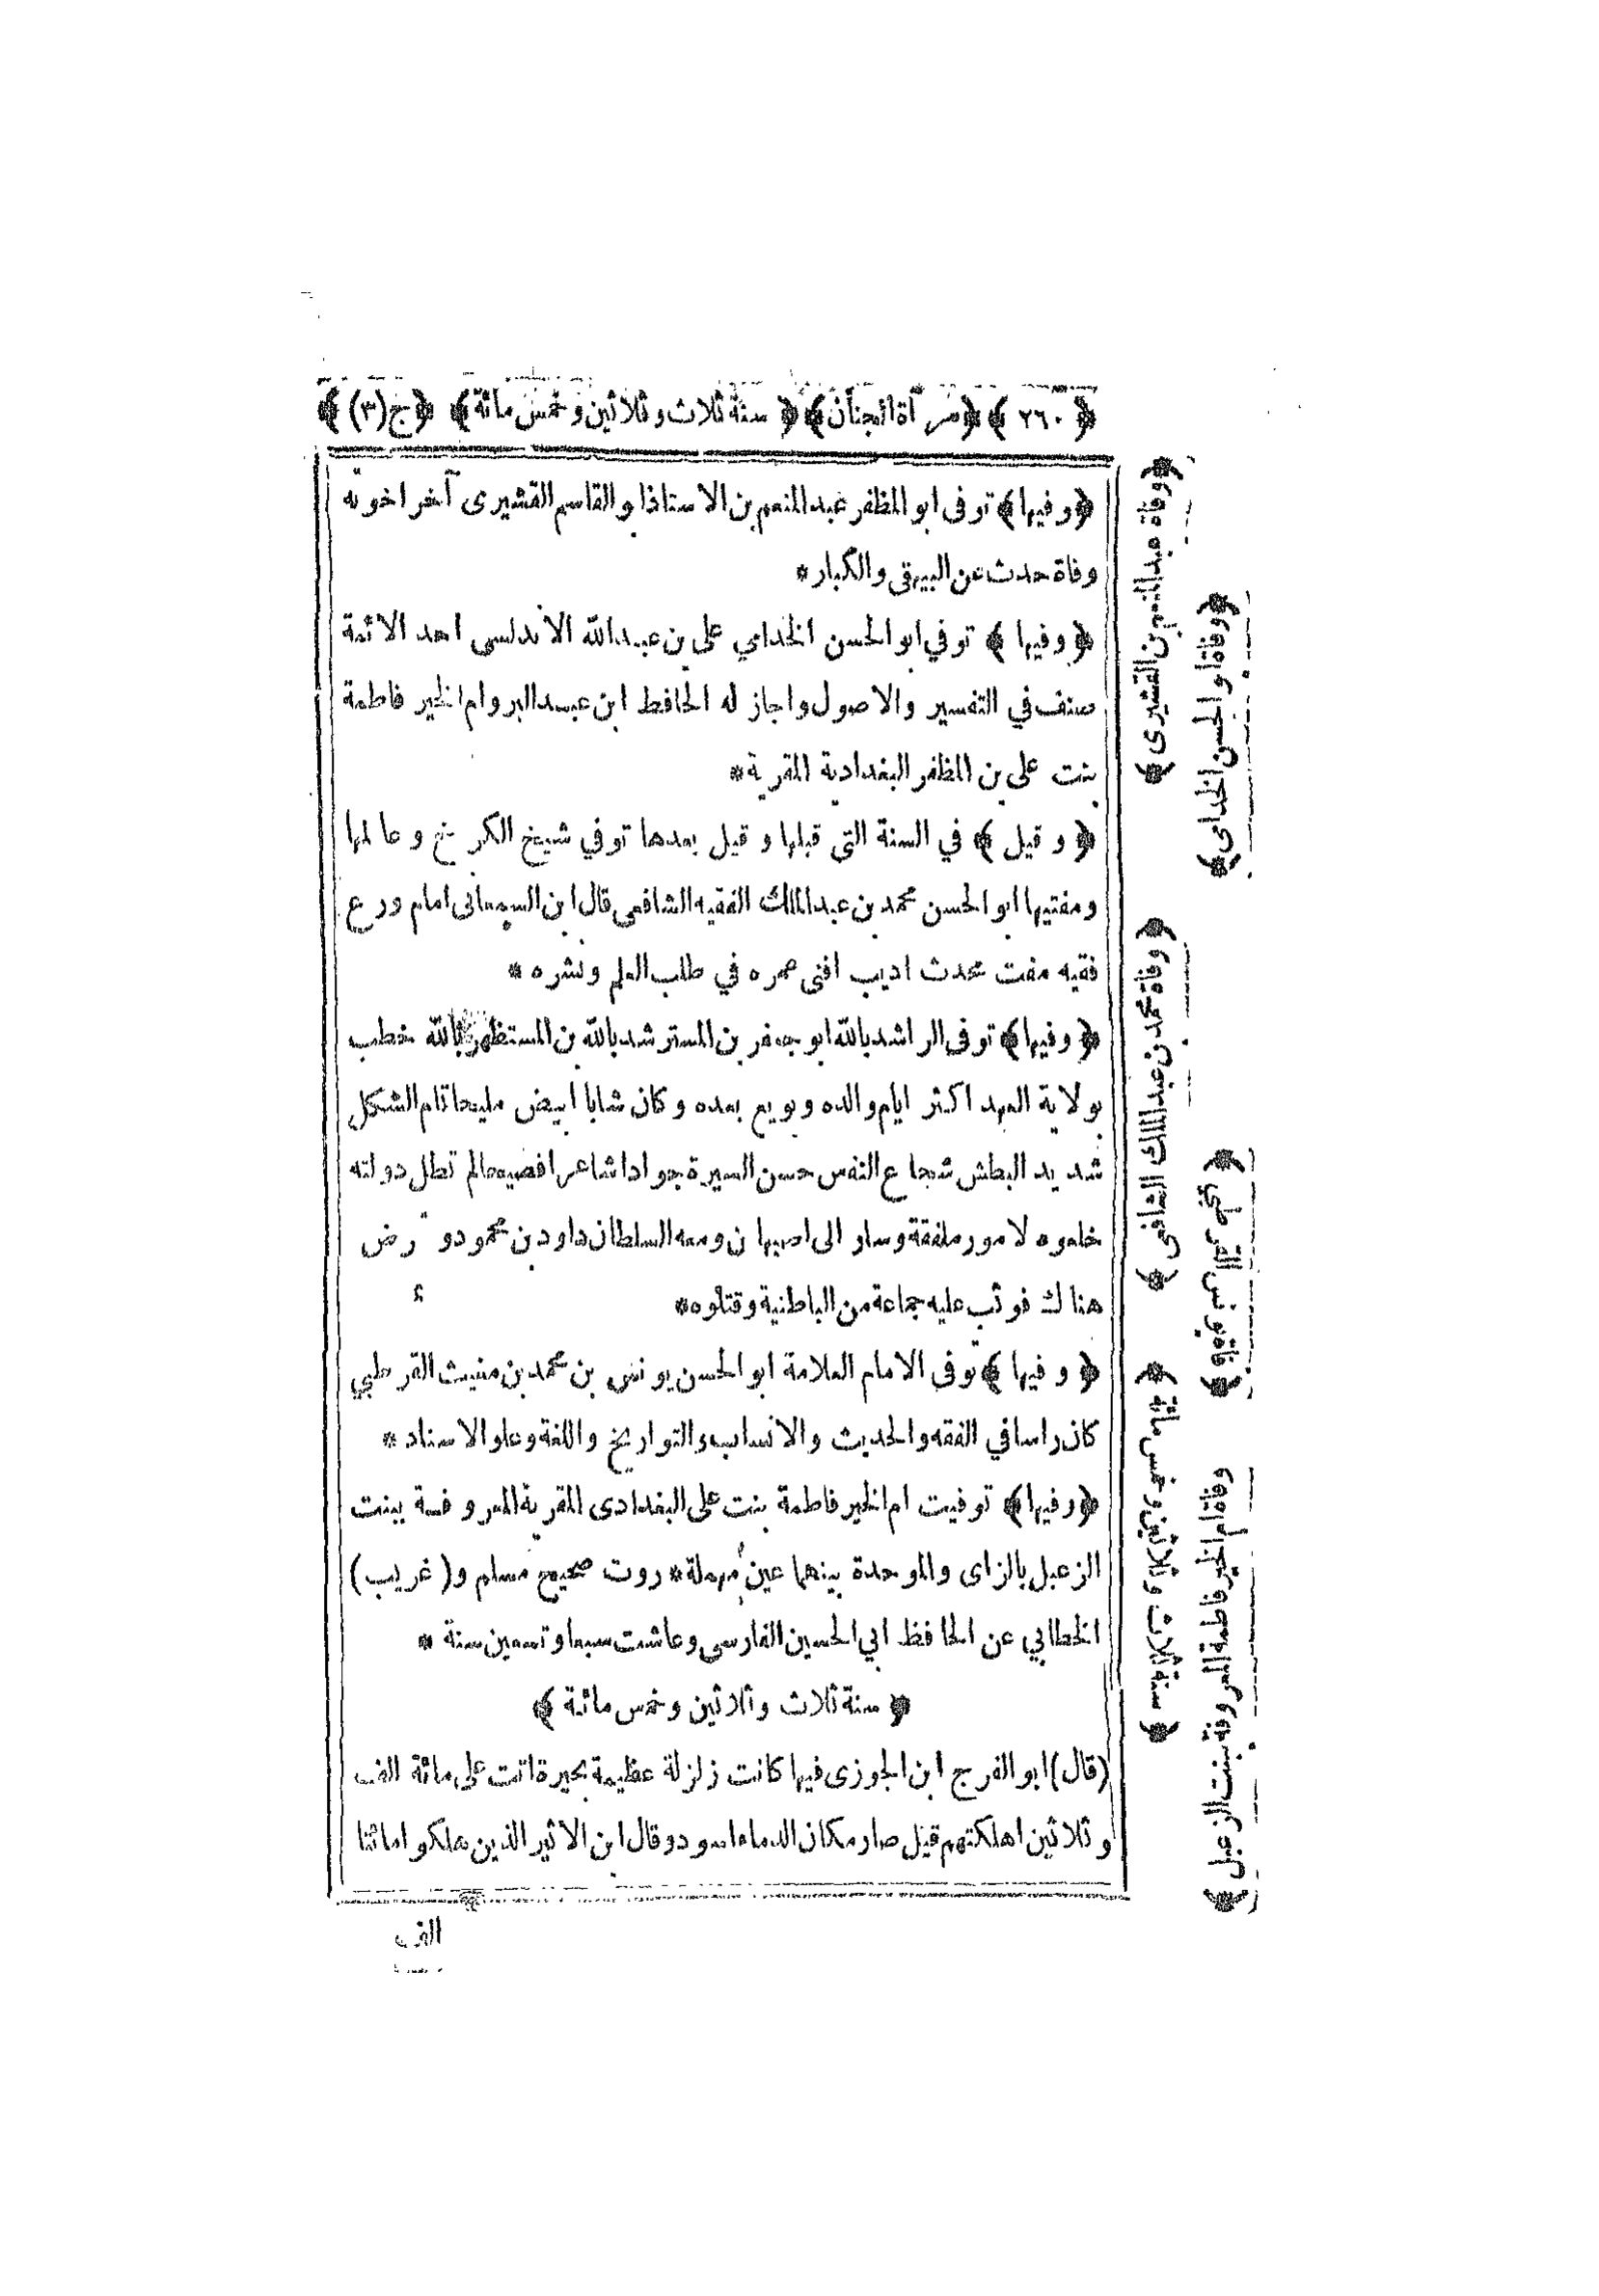 ﴿٢٦٠﴾ ﴿مرآة الجنان﴾ ﴿سنة ثلاث وثلاثين وخمس مائة﴾ ﴿ج(٣)﴾
﴿وفيها﴾ توفى ابو المظفر عبد المنعم بن الاستاذ ابو القاسم القشيرى آخر اخوته
وفاة حدث عن البيهقى والكبار*
﴿وفيها﴾ توفي ابو الحسن الخدامي على بن عبد الله الاندلسى احد الائمة
صنف في التفسير والاصول واجاز له الحافظ ابن عبد البر وام الخير فاطمة
بنت على بن المظفر البغدادية المقرية*
﴿وقيل﴾ في السنة التى قبلها وقيل بعدها توفي شيخ الكرخ وعالمها
ومفتيها ابو الحسن محمد بن عبد الملك الفقيه الشافعى قال ابن السمعانى امام ورع
فقيه مفت محدث اديب افنى عمره في طلب العلم ونشره*
﴿وفيها﴾ توفى الراشد بالله ابو جعفر بن المسترشد بالله بن المستظهر بالله خطب
بولاية العهد اكثر ايام والده وبويع بعده وكان شابا ابيض مليحا تام الشكل
شديد البطش شجاع النفس حسن السيرة جوادا شاعرا فصيحا لم تطل دولته
خلعوه لامور ملفقة وسار الى اصبهان ومعه السلطان داود بن محمود و رض
هناك فوثب عليه جماعة من الباطنية وقتلوه*
﴿وفيها﴾ توفى الامام العلامة ابو الحسن يونس بن محمد بن مغيث القرطبي
كان راسا في الفقه والحديث والانساب والتواريخ واللغة وعلو الاسناد*
﴿وفيها﴾ توفيت ام الخير فاطمة بنت على البغدادى المقرية المعروفة ببنت
الزعبل بالزاى والموحدة بينهما عين مهملة* روت صحيح مسلم و(غريب)
الخطابي عن الحافظ ابي الحسين الفارسى وعاشت سبعا وتسعين سنة*
﴿سنة ثلاث وثلاثين وخمس مائة﴾
(قال) ابو الفرج ابن الجوزى فيها كانت زلزلة عظيمة بحيرة اتت على مائة الف
وثلاثين اهلكتهم قيل صار مكان الدماء اسود وقال ابن الاثير الذين هلكوا مائتا
الف
﴿وفاة عبد المنعم بن القشيرى﴾
﴿وفاة ابو الحسن الخدامى﴾
﴿وفاة محمد بن عبد الملك الشافعى﴾
﴿سنة ثلاث وثلاثين وخمس مائة﴾
وفاة ام الخير فاطمة المعروفة ببنت الزعبل﴾